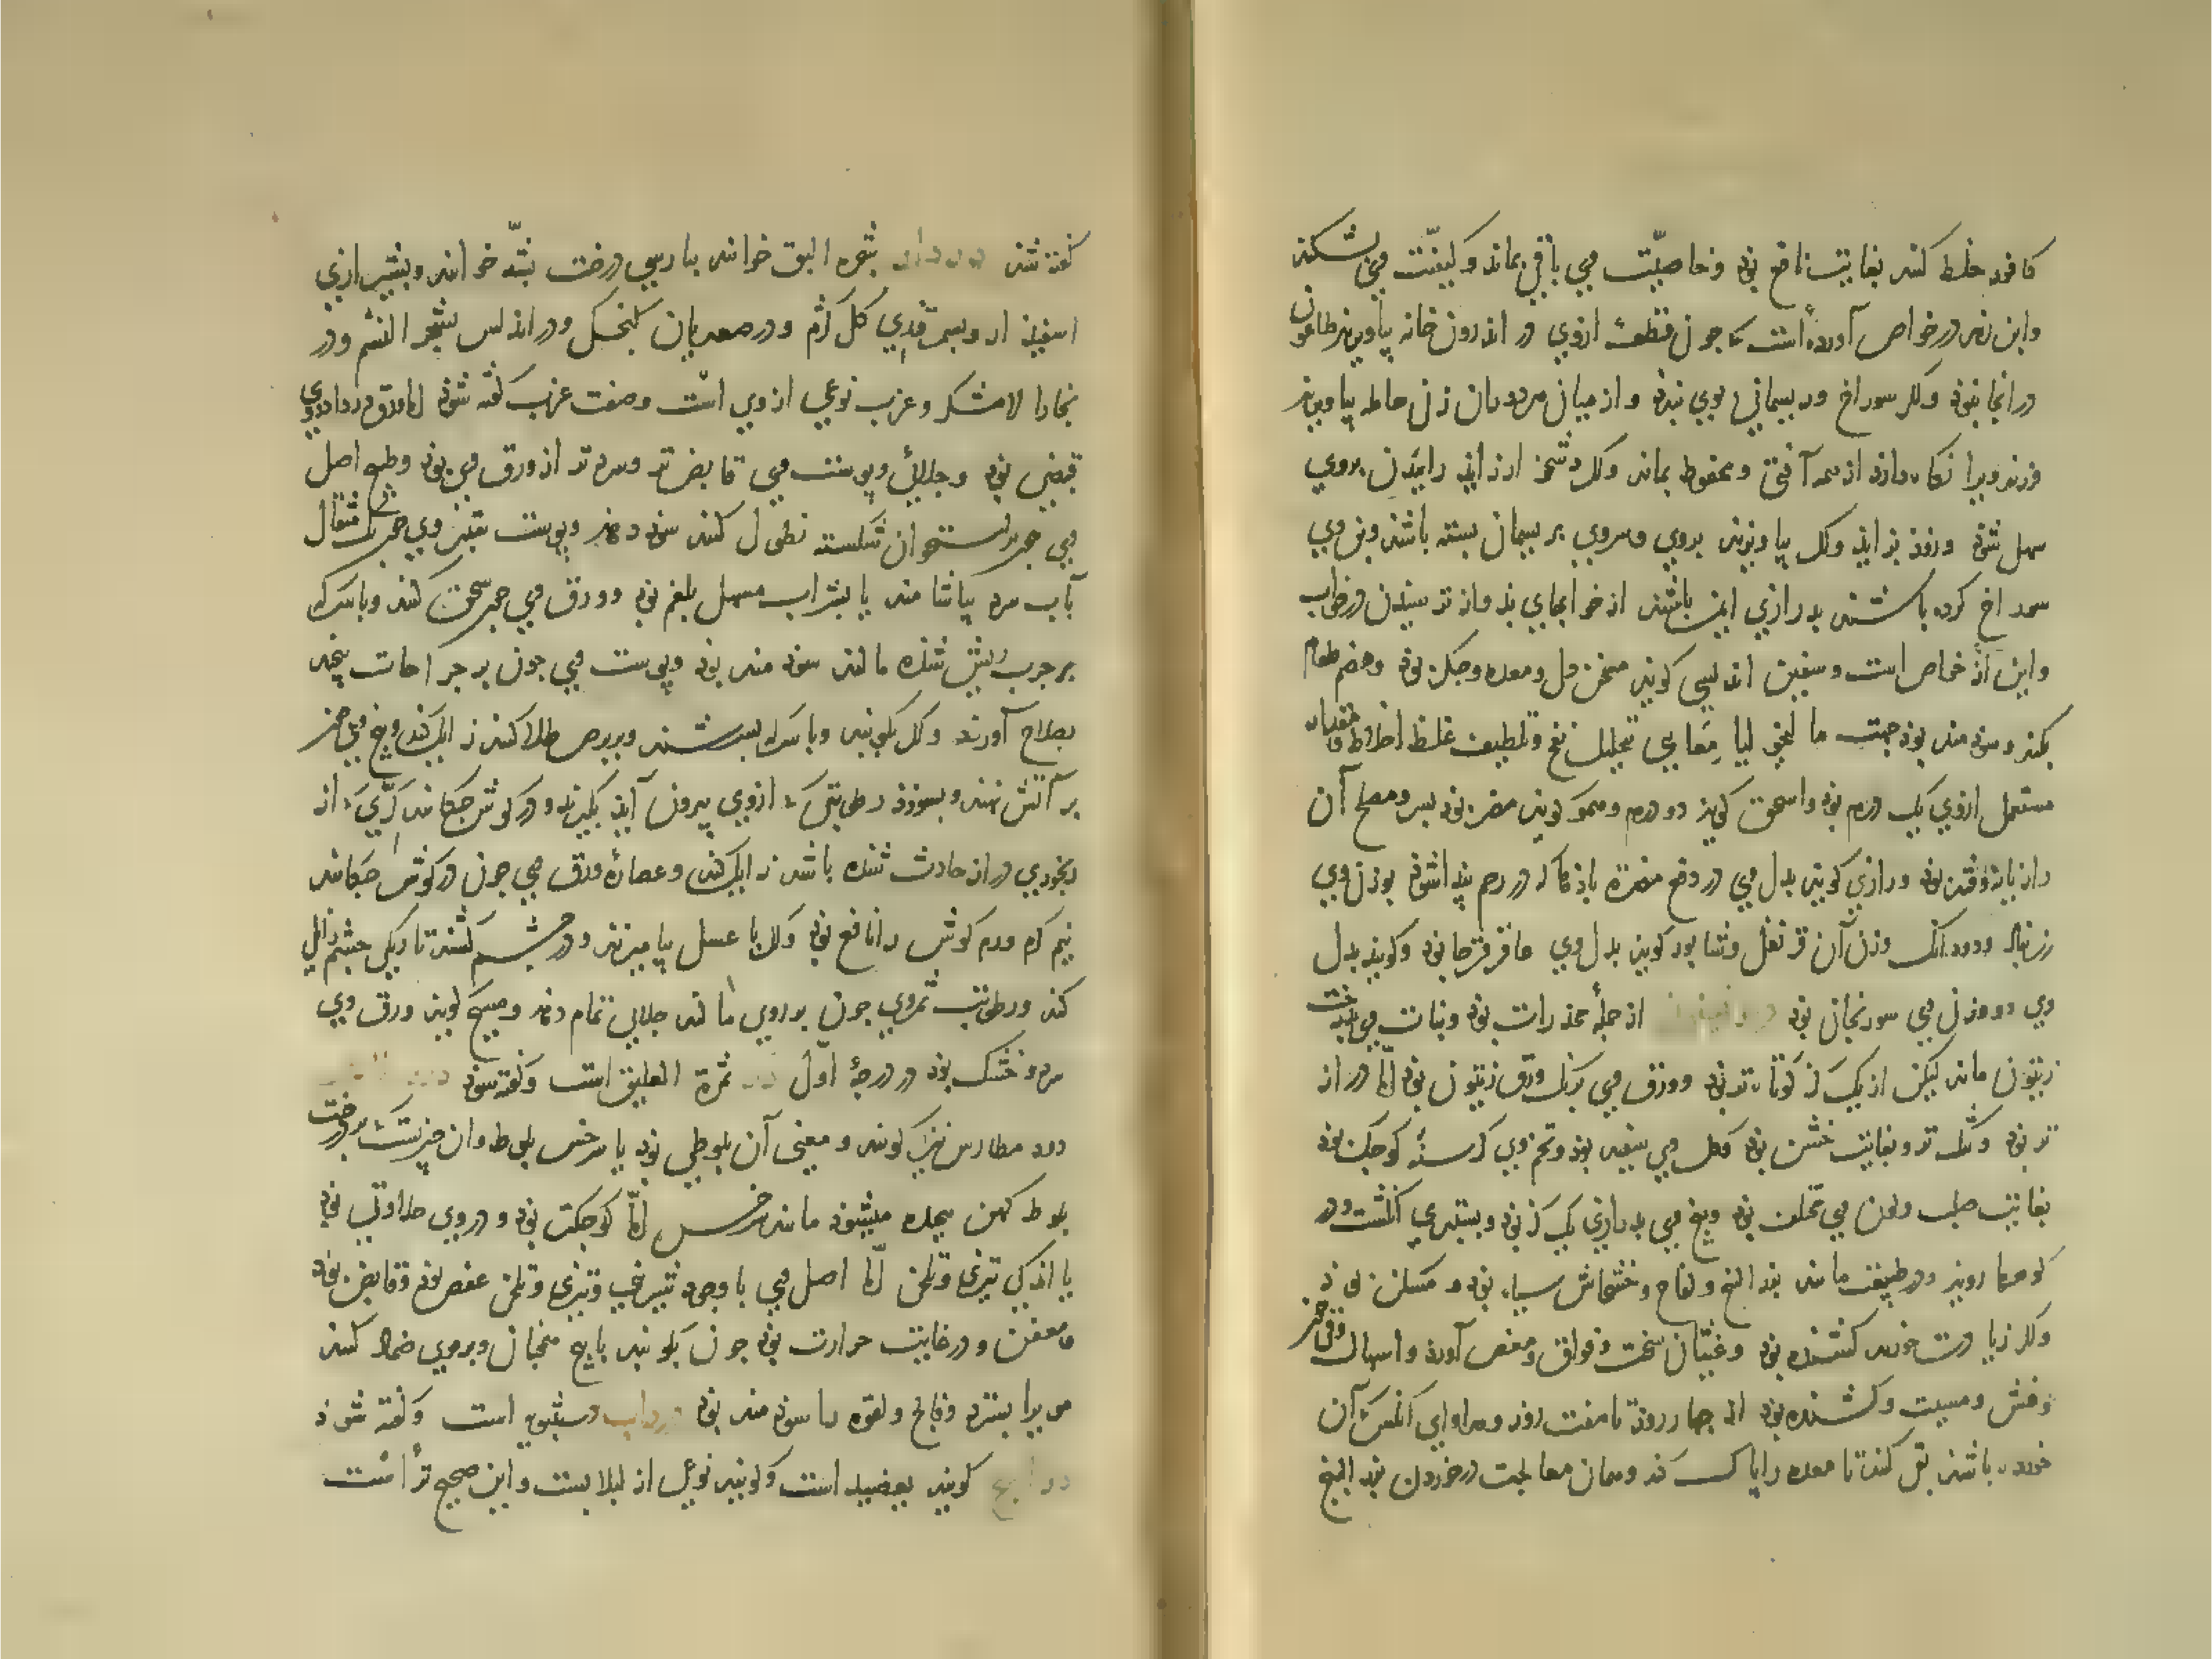 کافور خلط کنند بغایت نافع بود وخاصیّت وی باقی بماند و کیفیّت وی بشکند
واین زهر درخواص آورده است که چون قطعهٔ ازوی در اندرون خانه بیاویزند طاعون
درانجا نبود واکر سوراخ وریسمانی بوی بندند واز میان مردوران زن حامله بیاویزند
فرزند ویرا نکاه دارد از همه آفتی ومحفوظ بماند واکر دشخوار زاید زاییدن بروی
سهل شود وزود بزاید واکر بیاویزند بروی وبروی بریسمان بسته باشند وبن وی
سوراخ کرده باشند بدرازی ایمن باشند از خوابهای بد واز ترسیدن درخواب
واین از خواص است وسفین اندلسی کویند مسخن دل ومعده وجکر بود وهضم طعام
بکند وسودمند بود جهت مالیخولیا معایی تحلیل نفخ وتلطیف غلظ اخلاط ومقدار
مستعمل ازوی یک درم بود واسحق کوید دو درم وهمو کوید مضر بود بسر ومصلح آن
رازیانه وقند بود ورازی کوید بدل وی در دفع مضرة بادها که در رحم پیدا شود بوزن وی
زرنباد ودو دانک وزن آن قرنفل وشابور کوید بدل وی عاقرقرحا بود وکویند بدل
وی دو وزن وی سورنجان بود از جملهٔ مخدرات بود ونبات وی بنبت
زیتون ماند لیکن از یک کز کوتاه تر بود وورق وی برنک ورق زیتون بود امّا دراز
تر بود وتنک تر وبغایت خشن بود وکل وی سفید بود وتخم وی کرسنهٔ کوچک بود
بغایت صلب ولون وی مختلف بود وبیخ وی بدرازی یک کز بود وبستبری انکشت ودر
کوهها روید ودر طبیعت مانند بذر البنج ولفاح وخشخاش سیاه بود ومسکن بود
واکر زیادت خورند کشنده بود وغثیان سخت وفواق ومغص آورد واسهال وقی خون
وغشی ومسبت وکشنده بود از چهار روز تا هفت روز ومداوای آنکس که آن
خورده باشد بقی کند تا معده را پاک کند وهمان معالجت درخوردن بذر البنج
کفته شد دردار شجرة البق خوانند بپارسی درخت پشه خوانند وبشیرازی
اسفیدار وبسمرقندی کل کژم ودر صعدیان کنجک ودر اندلس شجر النشم ودر
بخارا لامشکر وغرب نوعی از وی است وصفت غرب کفته شود امّا ورق دردار در وی
قبضی بود وجلایی وپوست وی قابض تر وسرد تر از ورق وی بود وطبیخ اصل
وی چون بر استخوان شکسته نطول کنند سود دهد وپوست سبز وی چون یک مثقال
بآب سرد بیاشامند یا بشراب مسهل بلغم بود وورق وی چون سحق کنند وباسرکه
بر جرب ریش شده مالند سودمند بود وپوست وی چون بر جراحات پیچند
بصلاح آورد واکر بکوبند وباسرکه بسرشند وبر برص طلا کنند زایل کند وبیخ وی چون
بر آتش نهند وبسوزد رطوبتی که ازوی بیرون آید بکیرند ودر کوش چکانند کرّی که از
رنجوری دراز حادث شده باشد زایل کند وعصارهٔ ورق وی چون در کوش چکانند
نیم کرم ورم کوش را نافع بود واکر با عسل بیامیزند ودر چشم کشند تاریکی چشم زایل
کند ورطوبت ثمروی چون بر روی مالند جلایی تمام دهد ومسیح کوید ورق وی
سرد وخشک بود در درجهٔ اوّل ثمرة العلیق است وکفته شود
درد مطارس نیز کویند ومعنی آن بلوطی بود یا سرخس بلوط وان چیزیست بر درخت
بلوط کهن پیچیده میشود مانند سرخس امّا کوچکتر بود ودر وی حلاوتی بود
با اندکی تیزی وتلخی امّا اصل وی با وجود شیرینی وتیزی وتلخی عفص بود وقابض بود
ومعفن ودر غایت حرارت بود چون بکوبند با بیخ همچنان وبر وی ضماد کنند
موی را بسترد وفالج ولقوه را سودمند بود درداب دستنبویه است وکفته شود
کویند یعضید است وکویند نوعی از لبلابست واین صحیح تر است